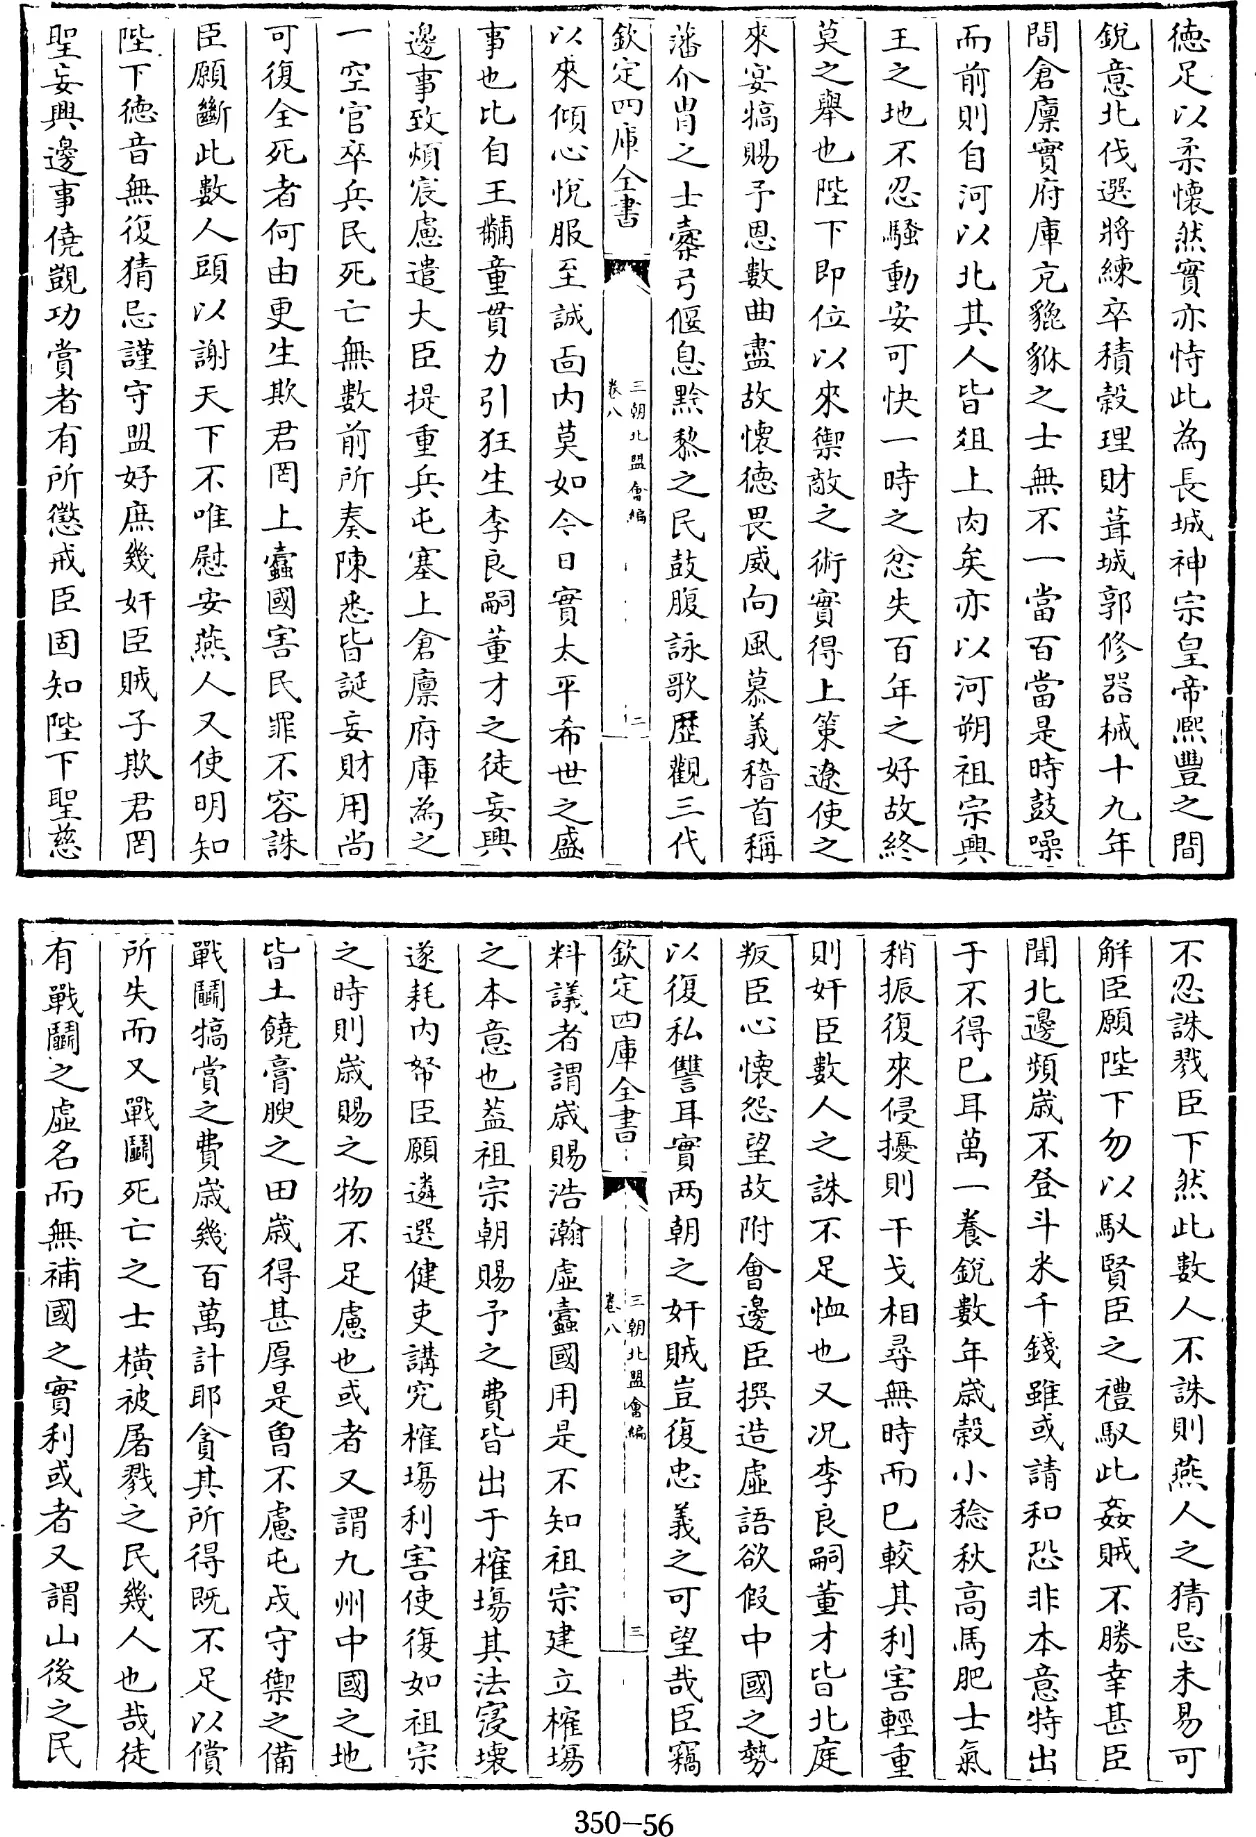 徳足以柔懐然實亦恃此為長城神宗皇帝熈豐之間
銳意北伐選將練卒積穀理財葺城郭修器械十九年
間倉廪實府庫充貔貅之士無不一當百當是時鼓噪
而前則自河以北其人皆俎上肉矣亦以河朔祖宗興
王之地不忍騷動安可快一時之忿失百年之好故終
莫之舉也陛下即位以來禦敵之術實得上策遼使之
來宴犒賜予恩數曲盡故懐徳畏威向風慕義稽首稱
藩介胄之士櫜弓偃息黔黎之民鼓腹詠歌歴觀三代
欽定四庫全書
三朝北盟㑹編
卷八
二
以來傾心悅服至誠面内莫如今日實太平希世之盛
事也比自王黼童貫力引狂生李良嗣董才之徒妄興
邊事致煩宸慮遣大臣提重兵屯塞上倉廪府庫為之
一空官卒兵民死亡無數前所奏陳悉皆誕妄財用尚
可復全死者何由更生欺君罔上蠧國害民罪不容誅
臣願斷此數人頭以謝天下不唯慰安燕人又使明知
陛下徳音無復猜忌謹守盟好庶幾奸臣賊子欺君罔
聖妄興邊事僥覬功賞者有所懲戒臣固知陛下聖慈
不忍誅戮臣下然此數人不誅則燕人之猜忌未易可
解臣願陛下勿以馭賢臣之禮馭此姦賊不勝幸甚臣
聞北邊頻歳不登斗米千錢雖或請和恐非本意特出
于不得已耳萬一養銳數年歳穀小稔秋高馬肥士氣
稍振復來侵擾則干戈相尋無時而已較其利害輕重
則奸臣數人之誅不足恤也又况李良嗣董才皆北庭
叛臣心懐怨望故附㑹邊臣撰造虛語欲假中國之勢
以復私讐耳實两朝之奸賊豈復忠義之可望哉臣竊
欽定四庫全書
三朝北盟㑹編
卷八
三
料議者謂歳賜浩瀚虛蠧國用是不知祖宗建立榷塲
之本意也葢祖宗朝賜予之費皆出于榷塲其法寖壞
遂耗内帑臣願遴選健吏講究榷塲利害使復如祖宗
之時則歳賜之物不足慮也或者又謂九州中國之地
皆土饒膏腴之田歳得甚厚是曽不慮屯戍守禦之備
戰鬬犒賞之費歳幾百萬計耶貪其所得既不足以償
所失而又戰鬬死亡之士横被屠戮之民幾人也哉徒
有戰鬬之虛名而無補國之實利或者又謂山後之民
350-56